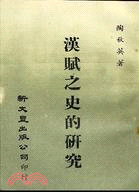 陶秋英著
漢賦之史的研究
新文豐出版公司印行